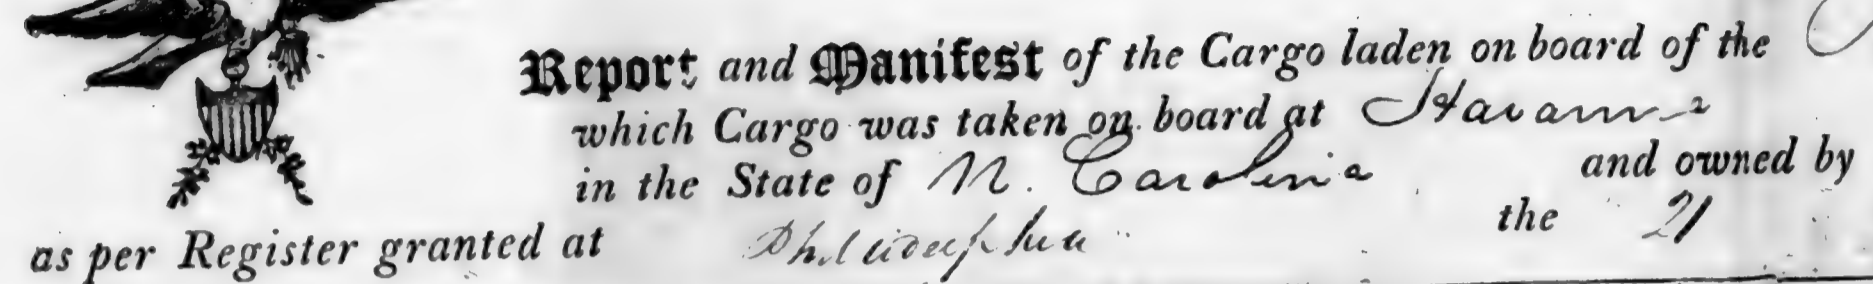 Report and Manifest of the Cargo laden on board of the
which Cargo was taken on board at Havanna
in the State of N. Carolina and owned by
as per Register granted at Philadelphia the 21